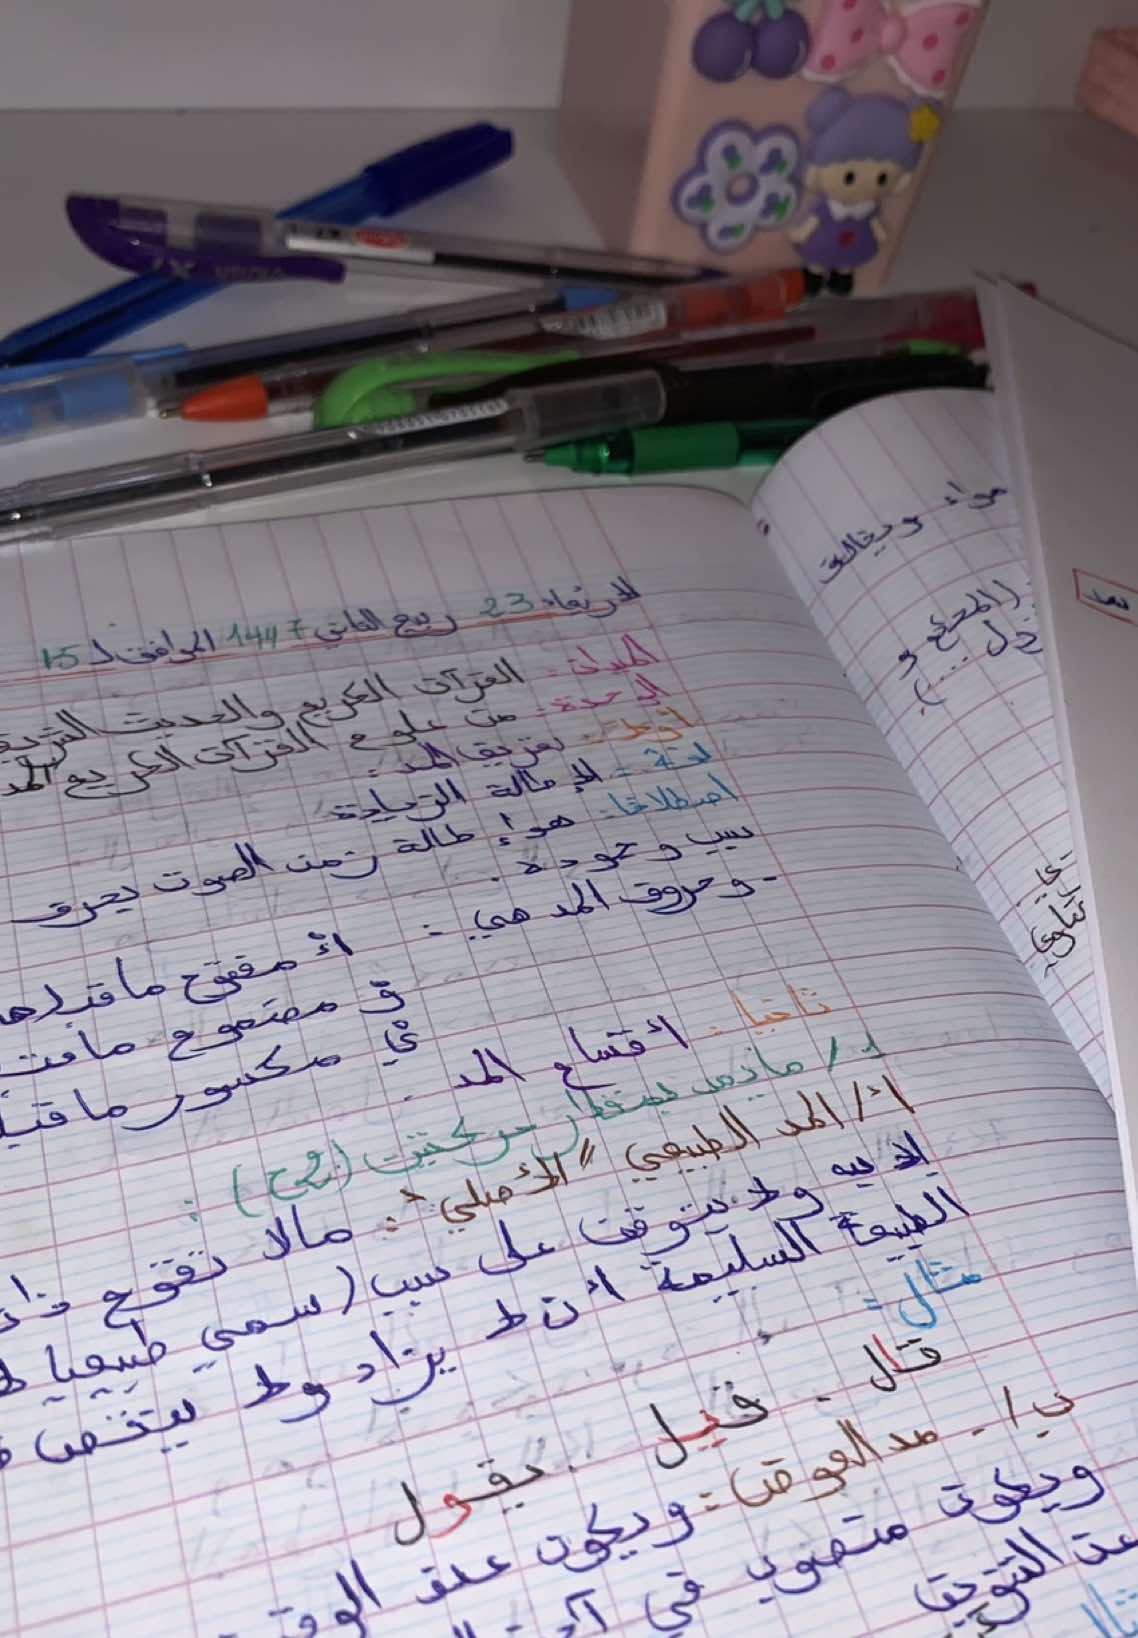 الأربعاء 23 ربيع الثاني 1447 الموافق لـ 15
الميدان: القرآن الكريم والحديث الشريف
الوحدة: من علوم القرآن الكريم المد
أولا: تعريف المد:
لغة: الإطالة الزيادة
اصطلاحا: هو إطالة زمن الصوت بحرف
سبب وجوده.
- وحروف المد هي:
أْ مفتوح ما قبلها
وْ مضموم ما قبـ
يْ مكسور ما قبلـ
ثانيا: أقسام المد:
1/ ما يمد بمقدار حركتين (2ح):
أ/ المد الطبيعي "الأصلي": مالا تقوم ذات
إلا به ولا يتوقف على سبب (سمي طبيعيا لـ
الطبيعة السليمة أن لا يزاد ولا ينقص
مثال:
قال - قيل - يقول
ب/ - مد العوض: ويكون عند الوقف
ويكون منصوب في آخر
عند التنوين
مثال
سواء ويخالف
(المحرم و
دل ....)
بعد